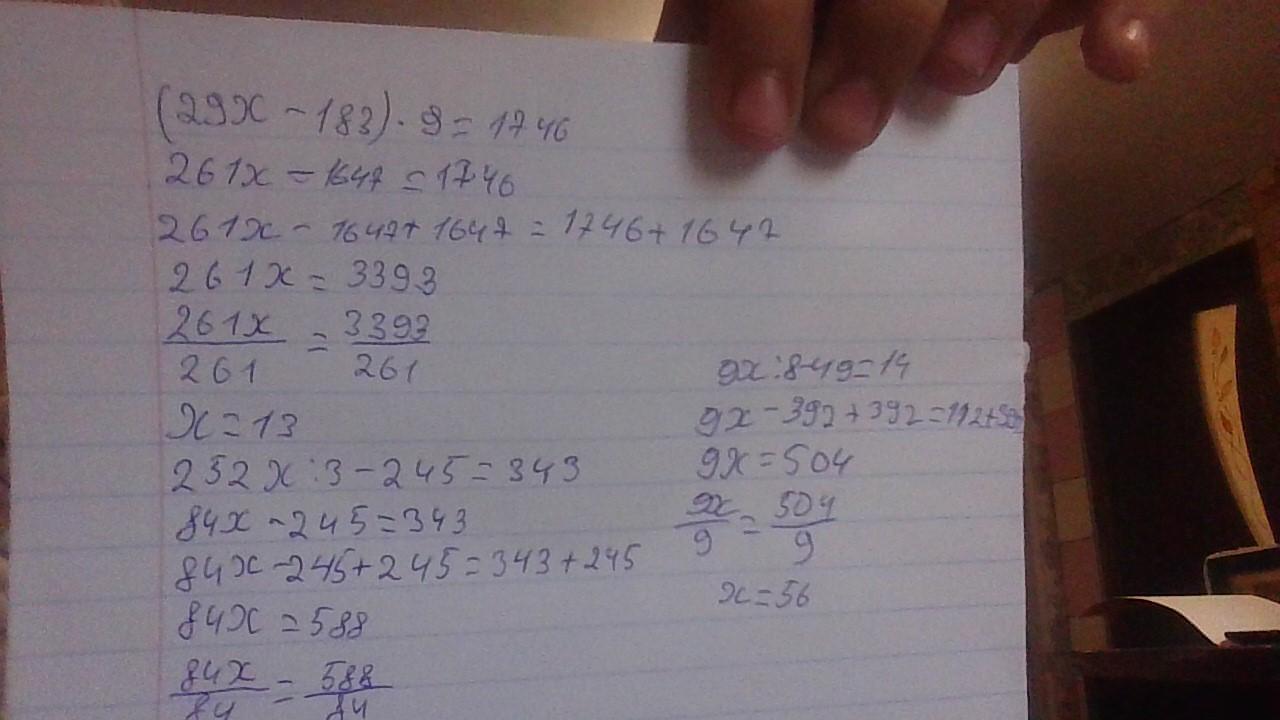 (29x - 183) · 9 = 1746
261x - 1647 = 1746
261x - 1647 + 1647 = 1746 + 1647
261x = 3393
261x/261 = 3393/261
x = 13
252x : 3 - 245 = 343
84x - 245 = 343
84x - 245 + 245 = 343 + 245
84x = 588
84x/84 = 588/84
9x : 8 - 49 = 14
9x - 392 + 392 = 112 +
9x = 504
9x/9 = 504/9
x = 56